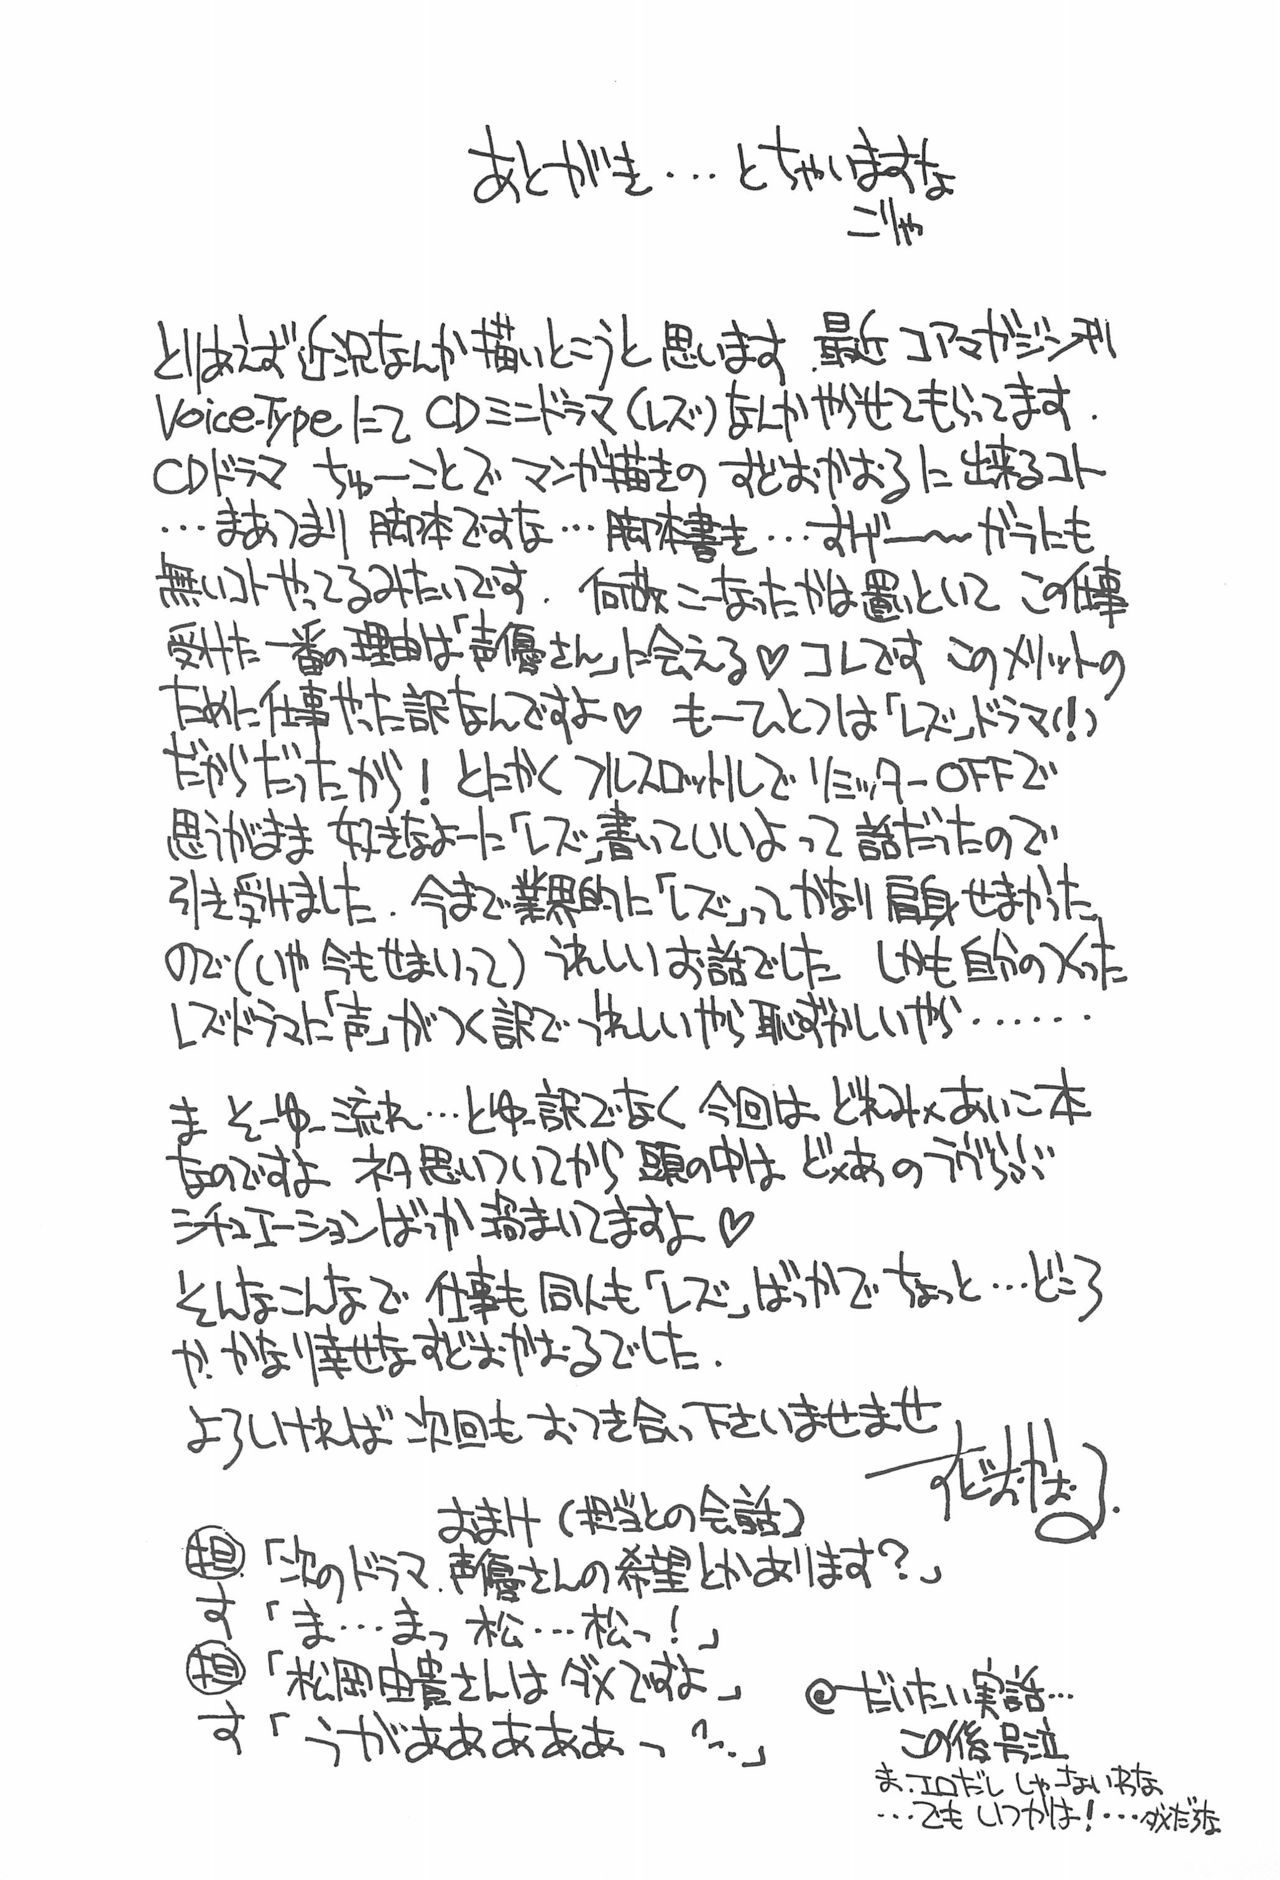 あとがき…とちゃいますな
こりゃ
とりあえず近況なんか描いとこうと思います.最近コアマガジン刊
Voice-Typeにて CDミニドラマ(レズ)なんかやらせてもらってます.
CDドラマ ちゅーことで マンガ描きの すどおかおるに 出来るコト
…まあつまり 脚本ですな…脚本書き…すげー〜 がらにも
無いコトやってるみたいです. 何故こーなったかは置いといて この仕事
受けた一番の理由は「声優さん」に会える♡ コレです このメリットの
ために仕事やった訳なんですよ♡ もーひとつは「レズ」ドラマ(!)
だからだったから! とにかく フルスロットルで リミッターOFFで
思うがまま 好きなよーに「レズ」書いていいよって 話だったので
引き受けました. 今まで業界的に「レズ」ってかなり肩身せまかった
ので(いや今もせまいって) うれしいお話でした しかも自分のつくった
レズドラマに「声」がつく訳で うれしいやら恥ずかしいやら……
ま そーゆー流れ…とゆー訳でなく 今回は どれみ×あいこ本
なのですよ ネタ思いついてから 頭の中は ど×あ のラヴらヴ
シチュエーションばっか渦まいてますよ♡
そんなこんなで 仕事も同人も「レズ」ばっかで ちょっと…どころ
か.かなり幸せなすどおかおるでした.
よろしければ 次回も おつき合い下さいませませ
すどおかおる.
おまけ(担当との会話)
担「次のドラマ.声優さんの希望とかあります?」
す「ま…まっ 松…松っ!」
担「松岡由貴さんは ダメですよ」
す「うがあああああっ 」
@だいたい実話…
この後号泣
ま.エロだし しゃーないわな
…でも いつかは!…ダメだろな